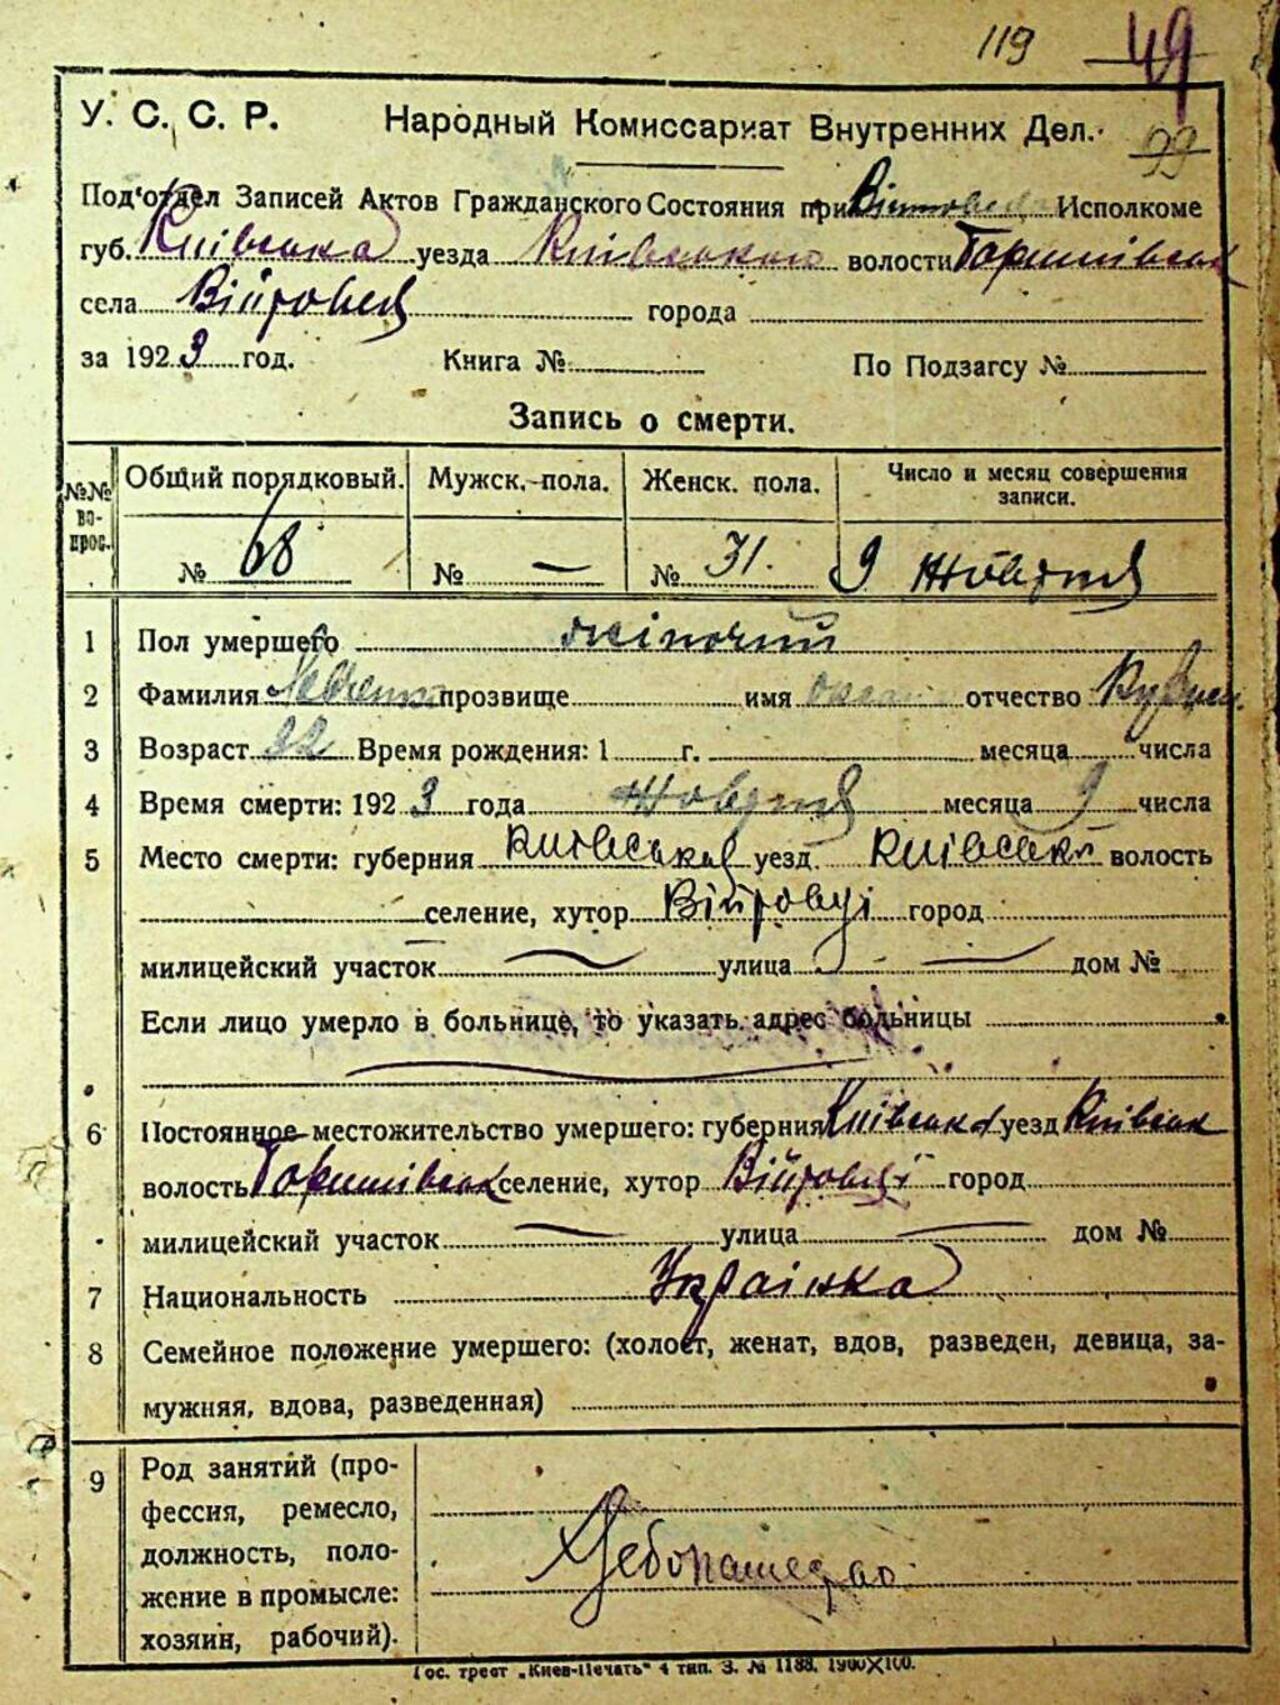 119 49
99
У. С. С. Р. Народный Комиссариат Внутренних Дел.
Под'отдел Записей Актов Гражданского Состояния при Исполкоме
губ. Київська уезда Київського волости
села Війтовец
города
за 1923 год. Книга № По Подзагсу №
Запись о смерти.
№№ вопрос. Общий порядковый. Мужск. пола. Женск. пола. Число и месяц совершения записи.
№ 68 № — № 31. 9 жовтня
1 Пол умершего жіночий
2 Фамилия прозвище имя отчество
3 Возраст 22 Время рождения: 1 г. месяца числа
4 Время смерти: 1923 года жовтня месяца 9 числа
5 Место смерти: губерния Київська уезд Київськ волость
селение, хутор Війтовці город
милицейский участок — улица — дом №
Если лицо умерло в больнице, то указать адрес больницы
6 Постоянное местожительство умершего: губерния Київська уезд Київськ
волость селение, хутор Війтовці город
милицейский участок — улица — дом №
7 Национальность Українка
8 Семейное положение умершего: (холост, женат, вдов, разведен, девица, за-
мужняя, вдова, разведенная)
9 Род занятий (про-
фессия, ремесло,
должность, поло-
жение в промысле:
хозяин, рабочий).
Гос. трест „Киев-Печать" 4 тип. З. № 1188. 1900×100.